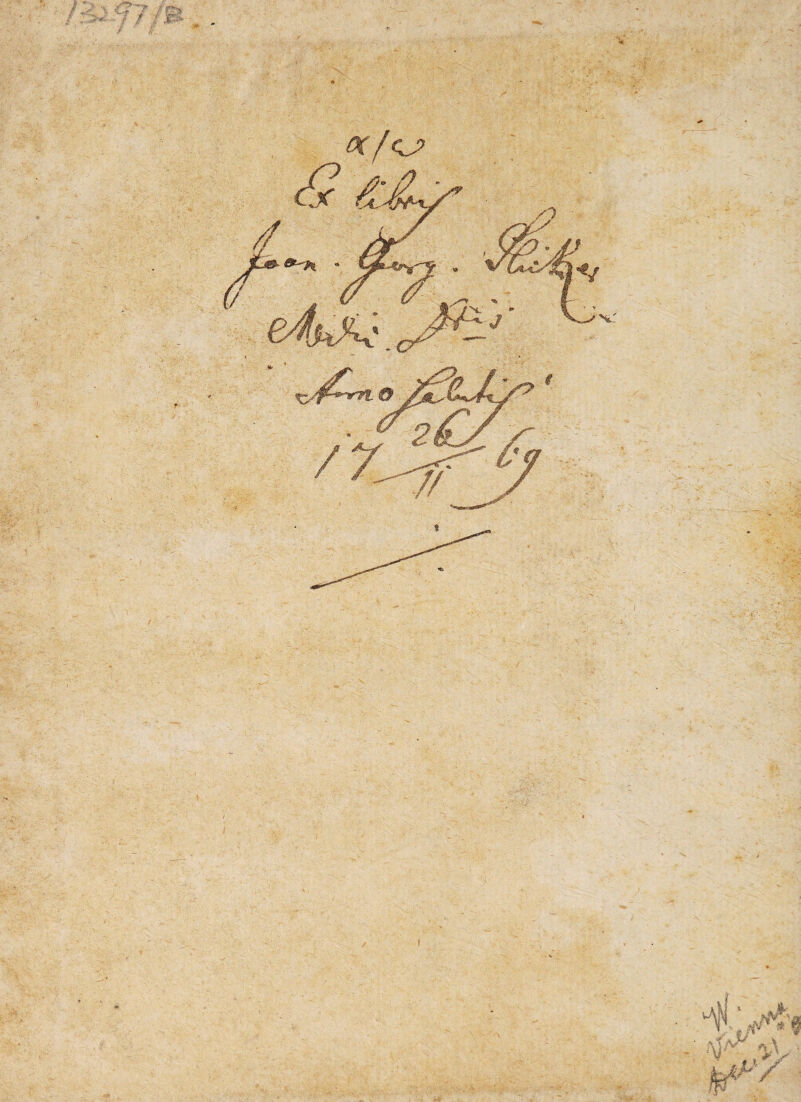 13297/B
α/ω
Ex libris
Joan. Georg.
Medici Dris
Anno Salutis
17 26/11 69
W.
Vienna
Dec. 21